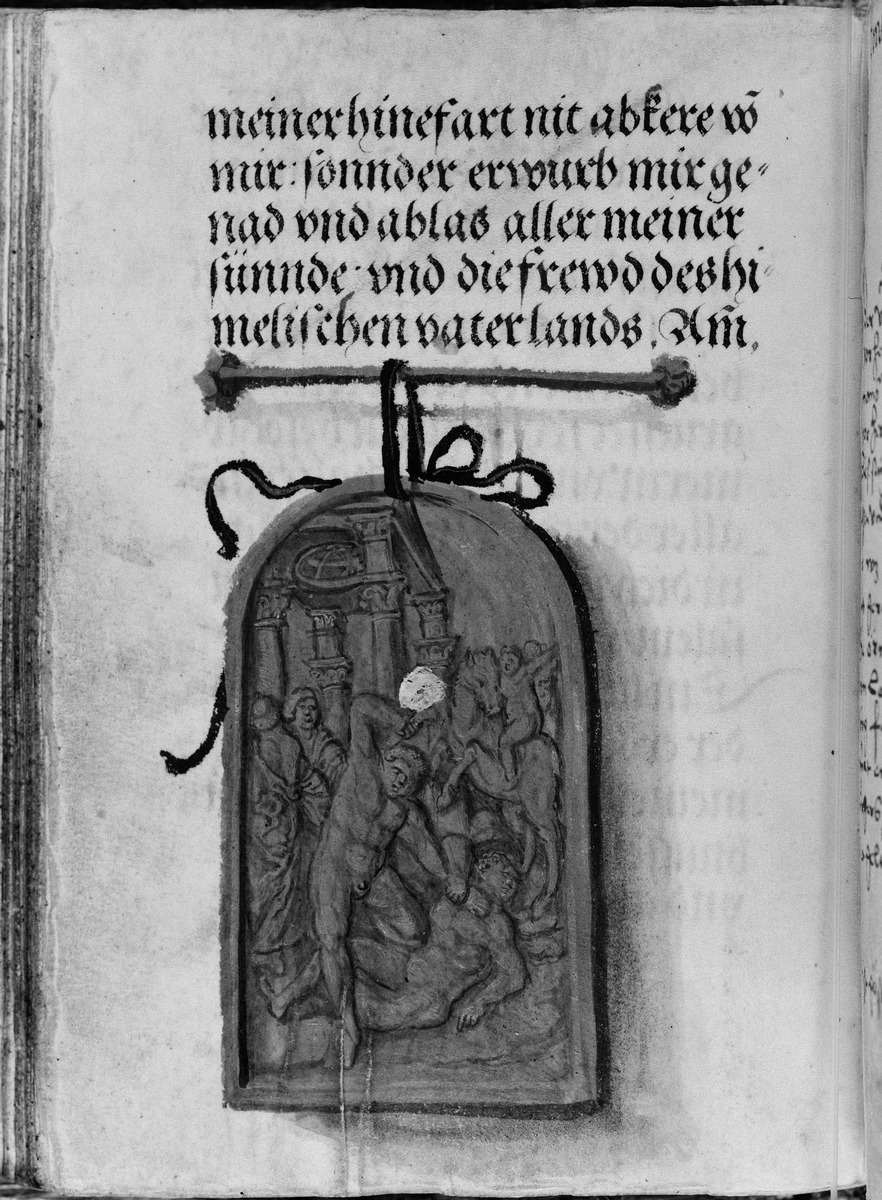 meiner hinefart nit abkere vō
mir: sonnder erwurb mir ge-
nad vnd ablas aller meiner
sünnde: vnd die frewd des hi-
melischen vaterlands. Am̄.